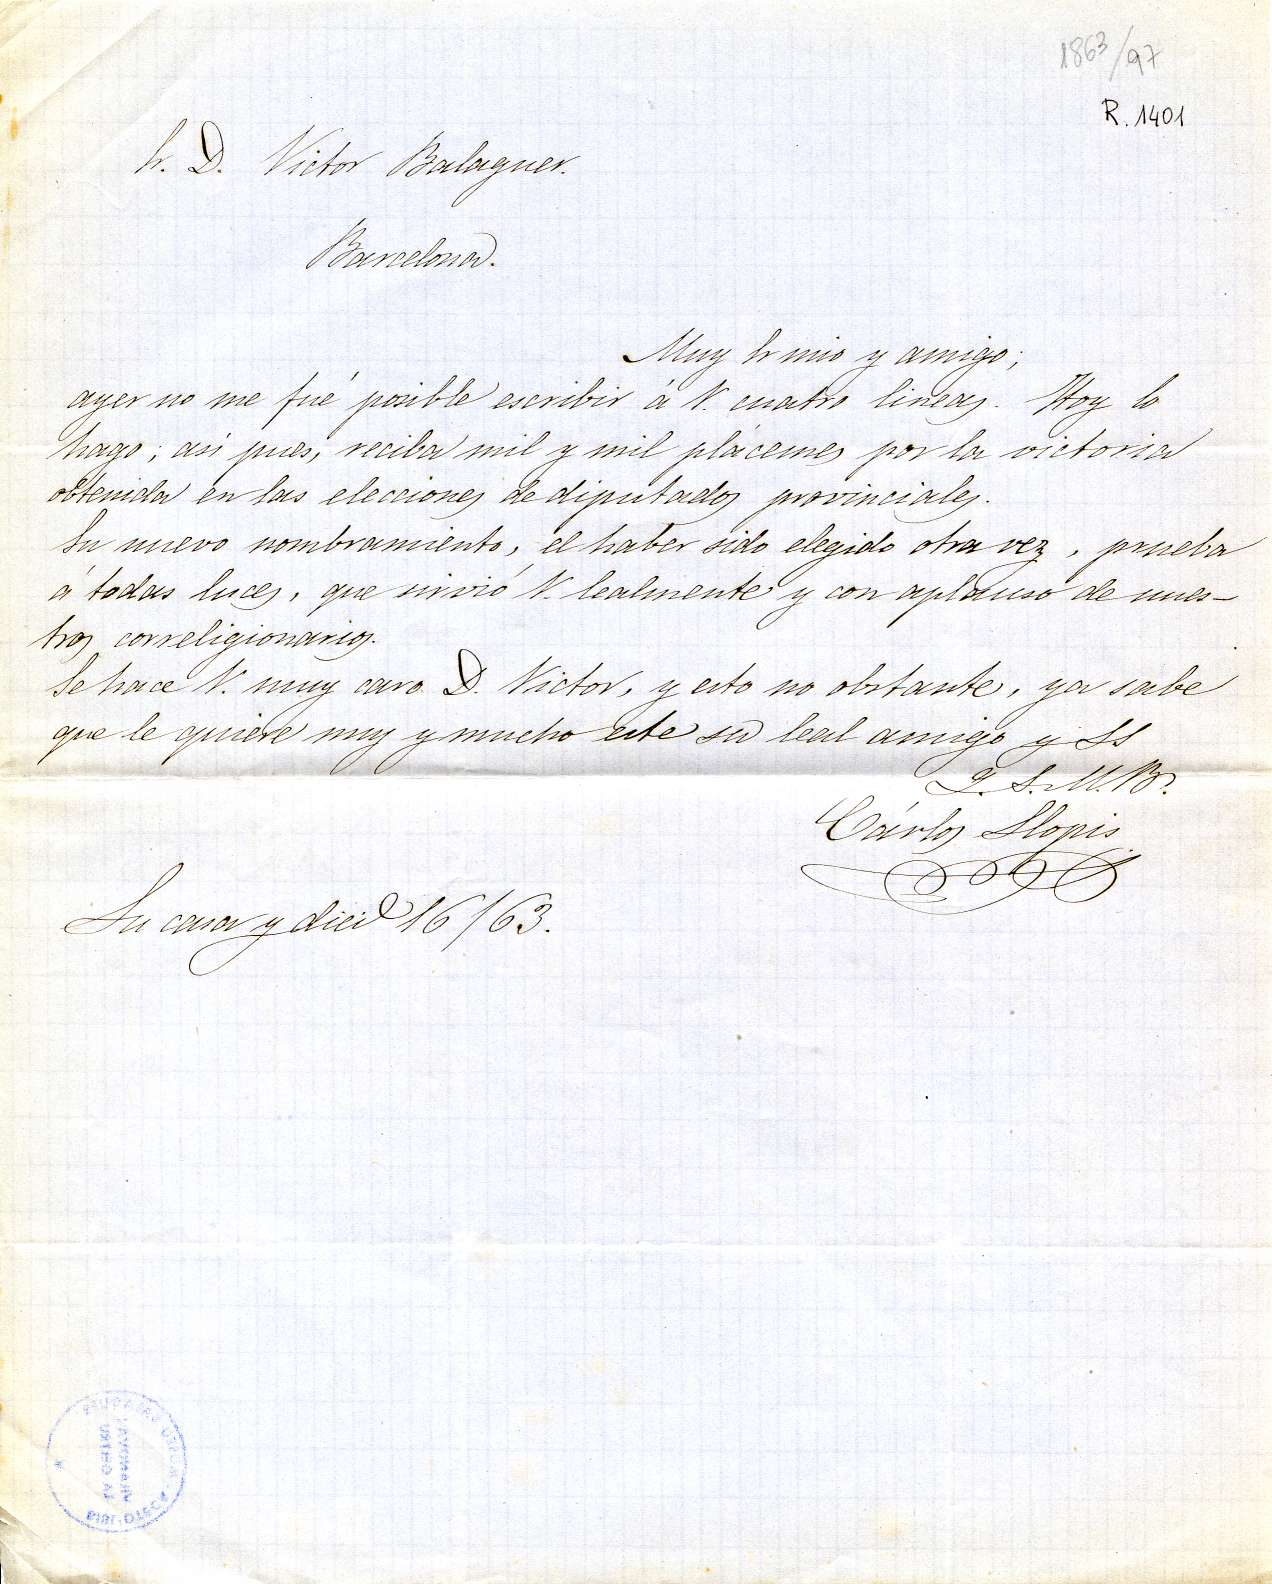 1863/97
R. 1401
Sr. D. Victor Balaguer.
Barcelona.
Muy Sr mio y amigo;
ayer no me fué posible escribir á V. cuatro lineas. Hoy lo
hago; asi pues, reciba mil y mil plácemes por la victoria
obtenida en las elecciones de diputados provinciales.
Su nuevo nombramiento, el haber sido elegido otra vez, prueba
á todas luces, que sirvió V. lealmente y con aplauso de nues-
tros correligionarios.
Se hace V. muy caro D. Victor, y esto no obstante, ya sabe
que le quiere muy y mucho este su leal amigo y SS
Q. S. M. B.
Cárlos Llopis
Su casa y 16/63.
VILLANUEVA
Y GELTRÚ